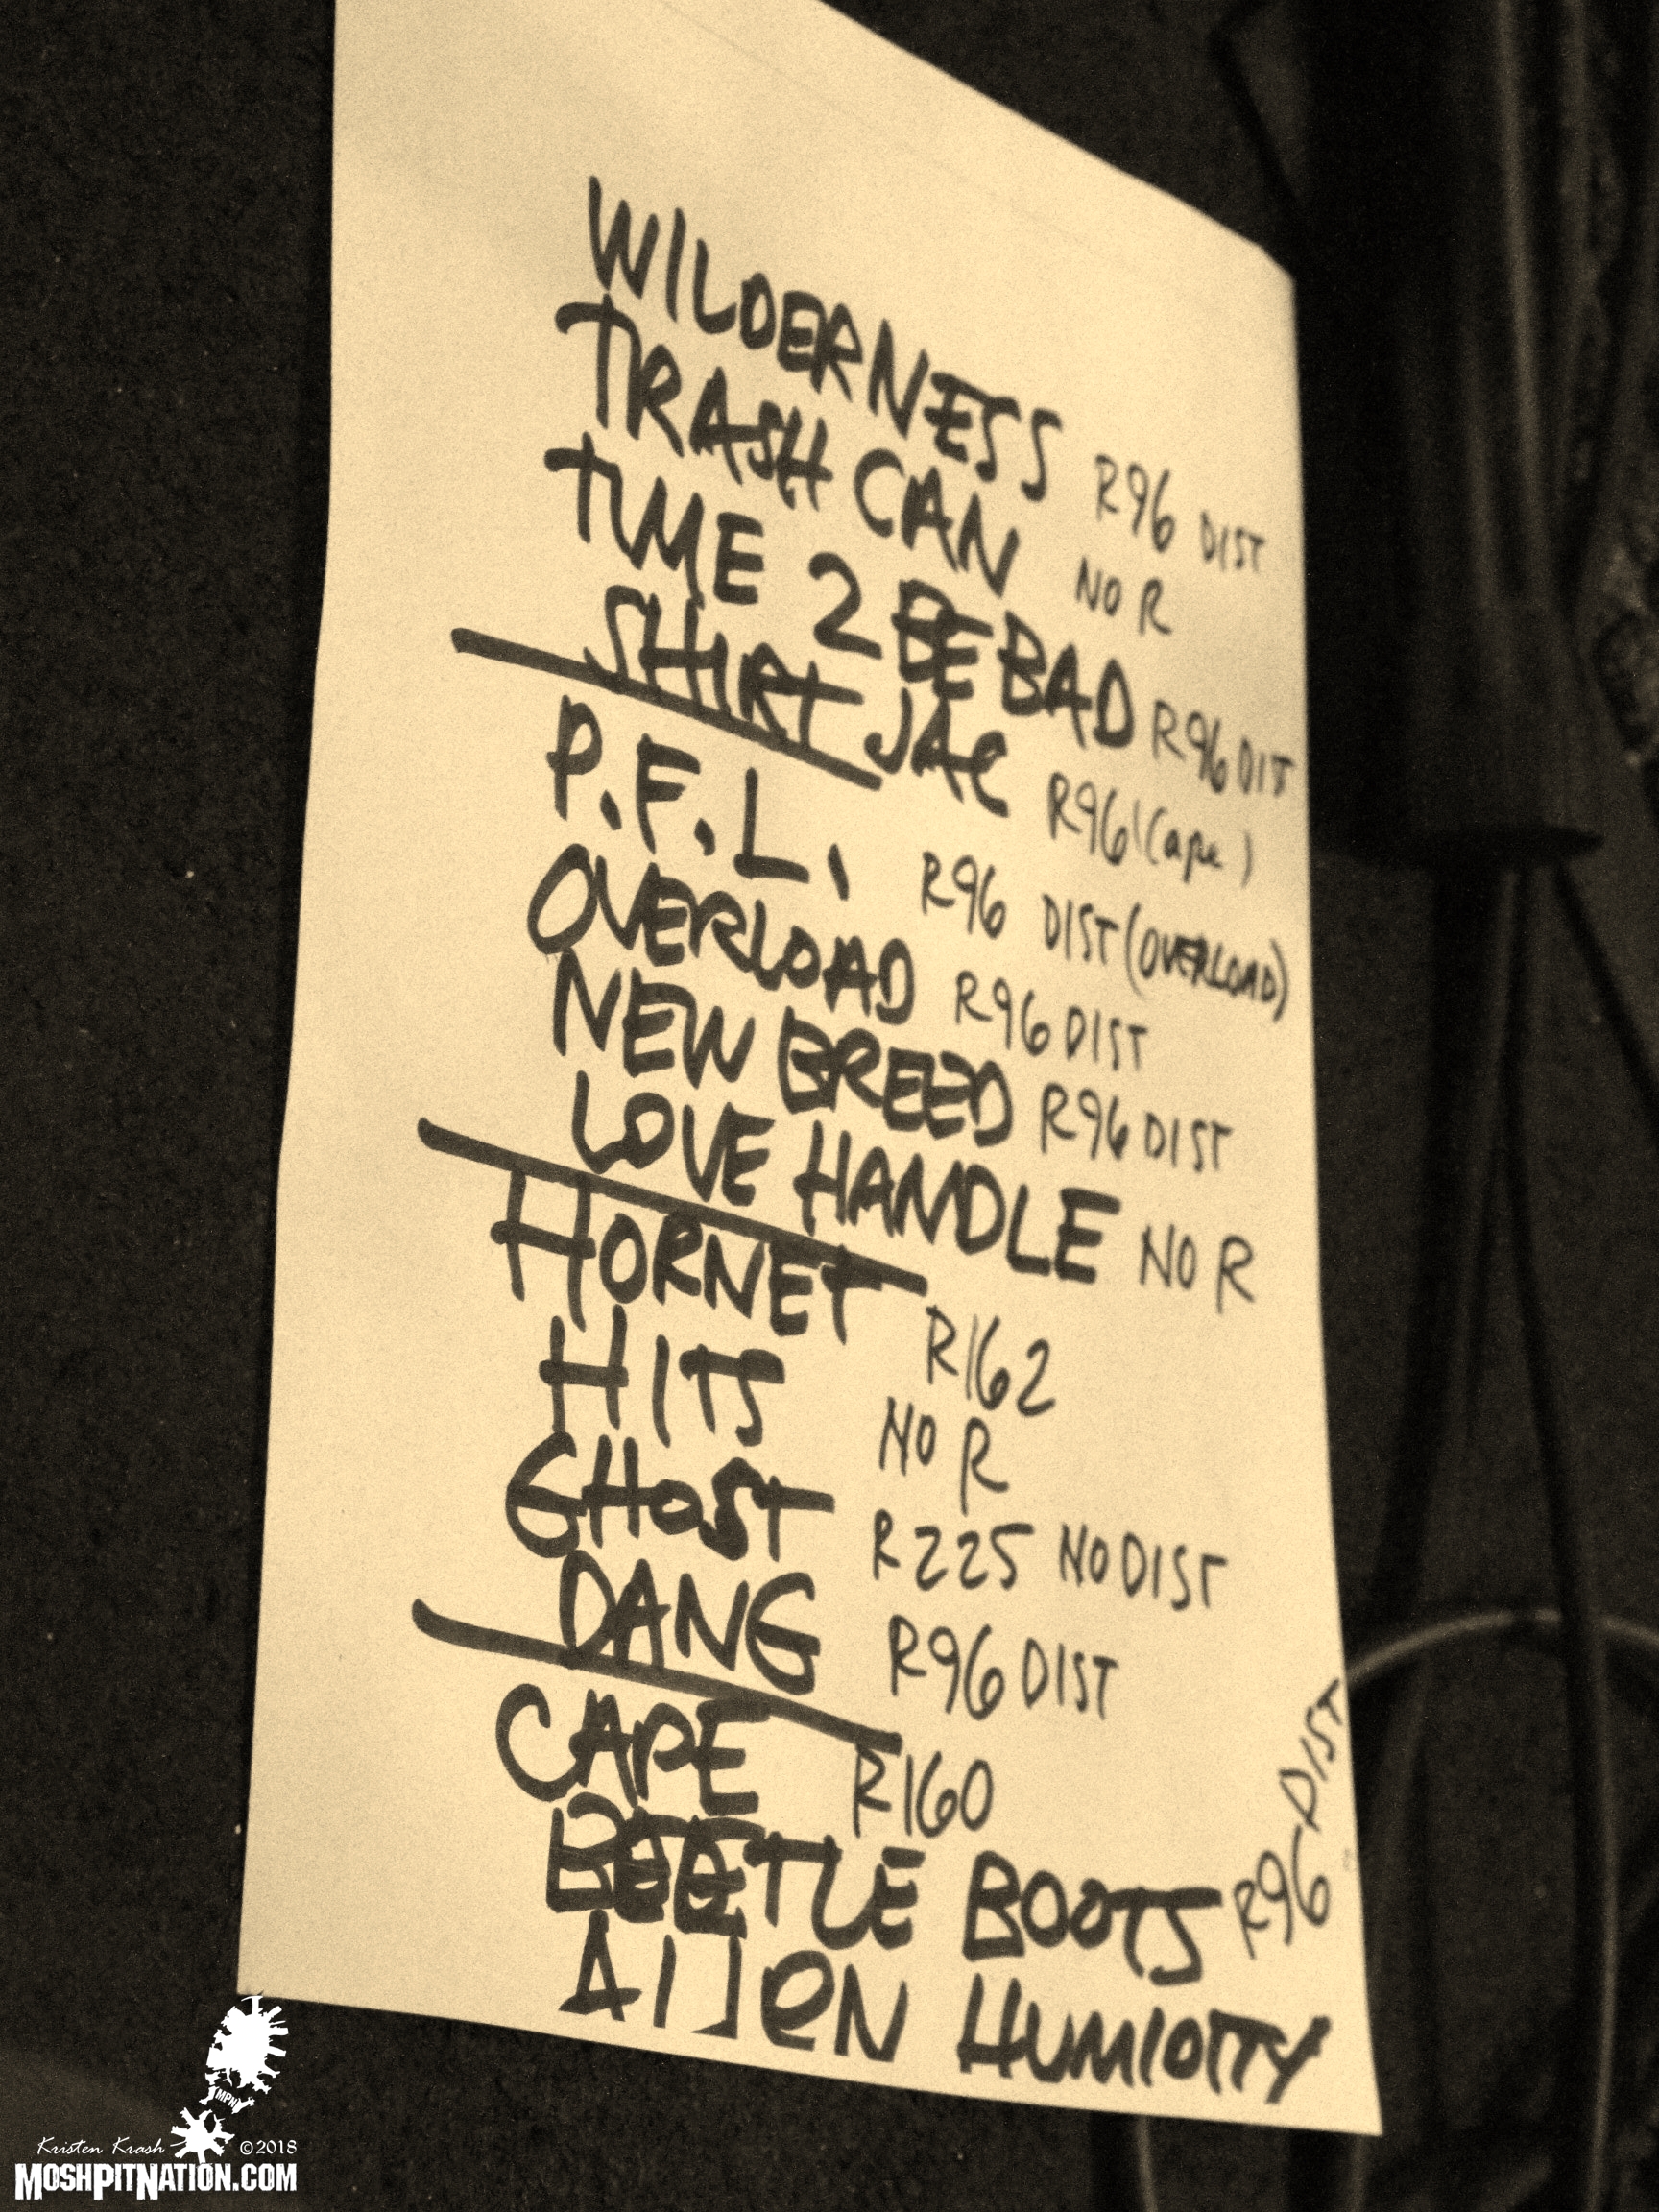 WILDERNESS R96 DIST
TRASH CAN NO R
TIME 2 BE BAD R96 DIST
SHIRT JAC R96 (cape)
P.F.L. R96 DIST (OVERLOAD)
OVERLOAD R96 DIST
NEW BREED R96 DIST
LOVE HANDLE NO R
HORNET R162
HITS NO R
GHOST R225 NO DIST
DANG R96 DIST
CAPE R160
BEETLE BOOTS R96 DIST
HUMIDITY
Kristen Krash ©2018
MOSHPITNATION.COM